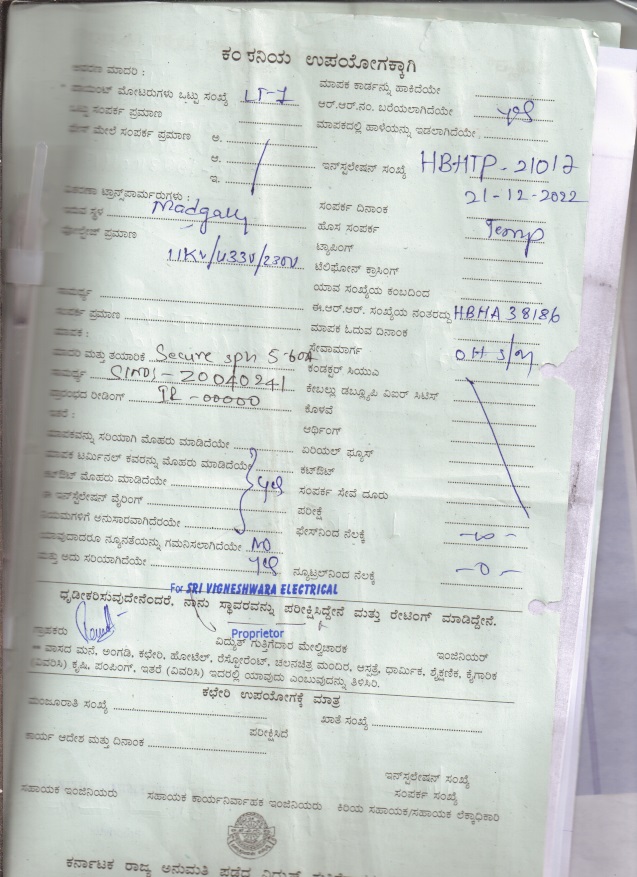 ಕಂಪನಿಯ ಉಪಯೋಗಕ್ಕಾಗಿ
ಮಾದರಿ : ಮಾಪಕ ಕಾರ್ಡನ್ನು ಹಾಕಿದೆಯೇ
ಪಾಯಿಂಟ್ ಮೋಟರುಗಳು ಒಟ್ಟು ಸಂಖ್ಯೆ LT-7 ಆರ್.ಆರ್.ನಂ. ಬರೆಯಲಾಗಿದೆಯೇ yes
ಒಟ್ಟು ಸಂಪರ್ಕ ಪ್ರಮಾಣ ಮಾಪಕದಲ್ಲಿ ಹಾಳೆಯನ್ನು ಇಡಲಾಗಿದೆಯೇ
ಮೇಲೆ ಸಂಪರ್ಕ ಪ್ರಮಾಣ ಅ.
ಆ. ಇನ್‌ಸ್ಟಲೇಷನ್ ಸಂಖ್ಯೆ HBHTP-21017
ಇ. 21-12-2022
ಟ್ರಾನ್ಸ್‌ಫಾರ್ಮರುಗಳು : ಸಂಪರ್ಕ ದಿನಾಂಕ
ಇರುವ ಸ್ಥಳ Madgally ಹೊಸ ಸಂಪರ್ಕ Temp
ವೋಲ್ಟೇಜ್ ಪ್ರಮಾಣ 11KV/433V/230V ಟ್ಯಾಪಿಂಗ್
ಟೆಲಿಫೋನ್ ಕ್ರಾಸಿಂಗ್
ಯಾವ ಸಂಖ್ಯೆಯ ಕಂಬದಿಂದ
ಸಾಮರ್ಥ್ಯ ಈ.ಆರ್.ಆರ್. ಸಂಖ್ಯೆಯ ನಂತರದ್ದು HBHA 38186
ಸಂಪರ್ಕ ಪ್ರಮಾಣ ಮಾಪಕ ಓದುವ ದಿನಾಂಕ
ಮಾಪಕ : ಸೇವಾಮಾರ್ಗ OH
ಮಾದರಿ ಮತ್ತು ತಯಾರಿಕೆ Secure 5-60A ಕಂಡಕ್ಟರ್ ಸಿಯುವಿ
ಸಾಮರ್ಥ್ಯ 20040241 ಕೇಬಲ್ಲು ಡಬ್ಲ್ಯೂಪಿ ವಿಐರ್ ಸಿಟಿಸ್
ಪ್ರಾರಂಭದ ರೀಡಿಂಗ್ IR -00000 ಕೊಳವೆ
ಇತರೆ : ಆರ್ಥಿಂಗ್
ಮಾಪಕವನ್ನು ಸರಿಯಾಗಿ ಮೊಹರು ಮಾಡಿದೆಯೇ ಏರಿಯಲ್ ಫ್ಯೂಸ್
ಮಾಪಕ ಟರ್ಮಿನಲ್ ಕವರನ್ನು ಮೊಹರು ಮಾಡಿದೆಯೇ ಕಟ್‌ಔಟ್
ಕಟ್‌ಔಟ್ ಮೊಹರು ಮಾಡಿದೆಯೇ yes ಸಂಪರ್ಕ ಸೇವೆ ದೂರು
ಈ ಇನ್‌ಸ್ಟಲೇಷನ್ ವೈರಿಂಗ್ ಪರೀಕ್ಷೆ
ನಿಯಮಗಳಿಗೆ ಅನುಸಾರವಾಗಿದೆರಯೇ ಫೇಸ್‌ನಿಂದ ನೆಲಕ್ಕೆ
ಯಾವುದಾದರೂ ನ್ಯೂನತೆಯನ್ನು ಗಮನಿಸಲಾಗಿದೆಯೇ NO
ಮತ್ತು ಅದು ಸರಿಯಾಗಿದೆಯೇ yes ನ್ಯೂಟ್ರಲ್‌ನಿಂದ ನೆಲಕ್ಕೆ -0-
For SRI VIGNESHWARA ELECTRICAL
ಧೃಡೀಕರಿಸುವುದೇನೆಂದರೆ, ನಾನು ಸ್ಥಾವರವನ್ನು ಪರೀಕ್ಷಿಸಿದ್ದೇನೆ ಮತ್ತು ರೇಟಿಂಗ್ ಮಾಡಿದ್ದೇನೆ.
Proprietor
ಗ್ರಾಹಕರು ವಿದ್ಯುತ್ ಗುತ್ತಿಗೆದಾರ ಮೇಲ್ವಿಚಾರಕ ಇಂಜಿನಿಯರ್
ವಾಸದ ಮನೆ, ಅಂಗಡಿ, ಕಛೇರಿ, ಹೋಟೆಲ್, ರೆಸ್ಟೋರೆಂಟ್, ಚಲನಚಿತ್ರ ಮಂದಿರ, ಆಸ್ಪತ್ರೆ, ಧಾರ್ಮಿಕ, ಶೈಕ್ಷಣಿಕ, ಕೈಗಾರಿಕ
(ವಿವರಿಸಿ) ಕೃಷಿ, ಪಂಪಿಂಗ್, ಇತರೆ (ವಿವರಿಸಿ) ಇದರಲ್ಲಿ ಯಾವುದು ಎಂಬುವುದನ್ನು ತಿಳಿಸಿರಿ.
ಕಛೇರಿ ಉಪಯೋಗಕ್ಕೆ ಮಾತ್ರ
ಮಂಜೂರಾತಿ ಸಂಖ್ಯೆ ಖಾತೆ ಸಂಖ್ಯೆ
ಪರೀಕ್ಷಿಸಿದೆ
ಕಾರ್ಯ ಆದೇಶ ಮತ್ತು ದಿನಾಂಕ
ಇನ್‌ಸ್ಟಲೇಷನ್ ಸಂಖ್ಯೆ
ಸಂಪರ್ಕ ಸಂಖ್ಯೆ
ಸಹಾಯಕ ಇಂಜಿನಿಯರು ಸಹಾಯಕ ಕಾರ್ಯನಿರ್ವಾಹಕ ಇಂಜಿನಿಯರು ಕಿರಿಯ ಸಹಾಯಕ/ಸಹಾಯಕ ಲೆಕ್ಕಾಧಿಕಾರಿ
ಕರ್ನಾಟಕ ರಾಜ್ಯ ಅನುಮತಿ ಪಡೆದ ವಿದ್ಯುತ್